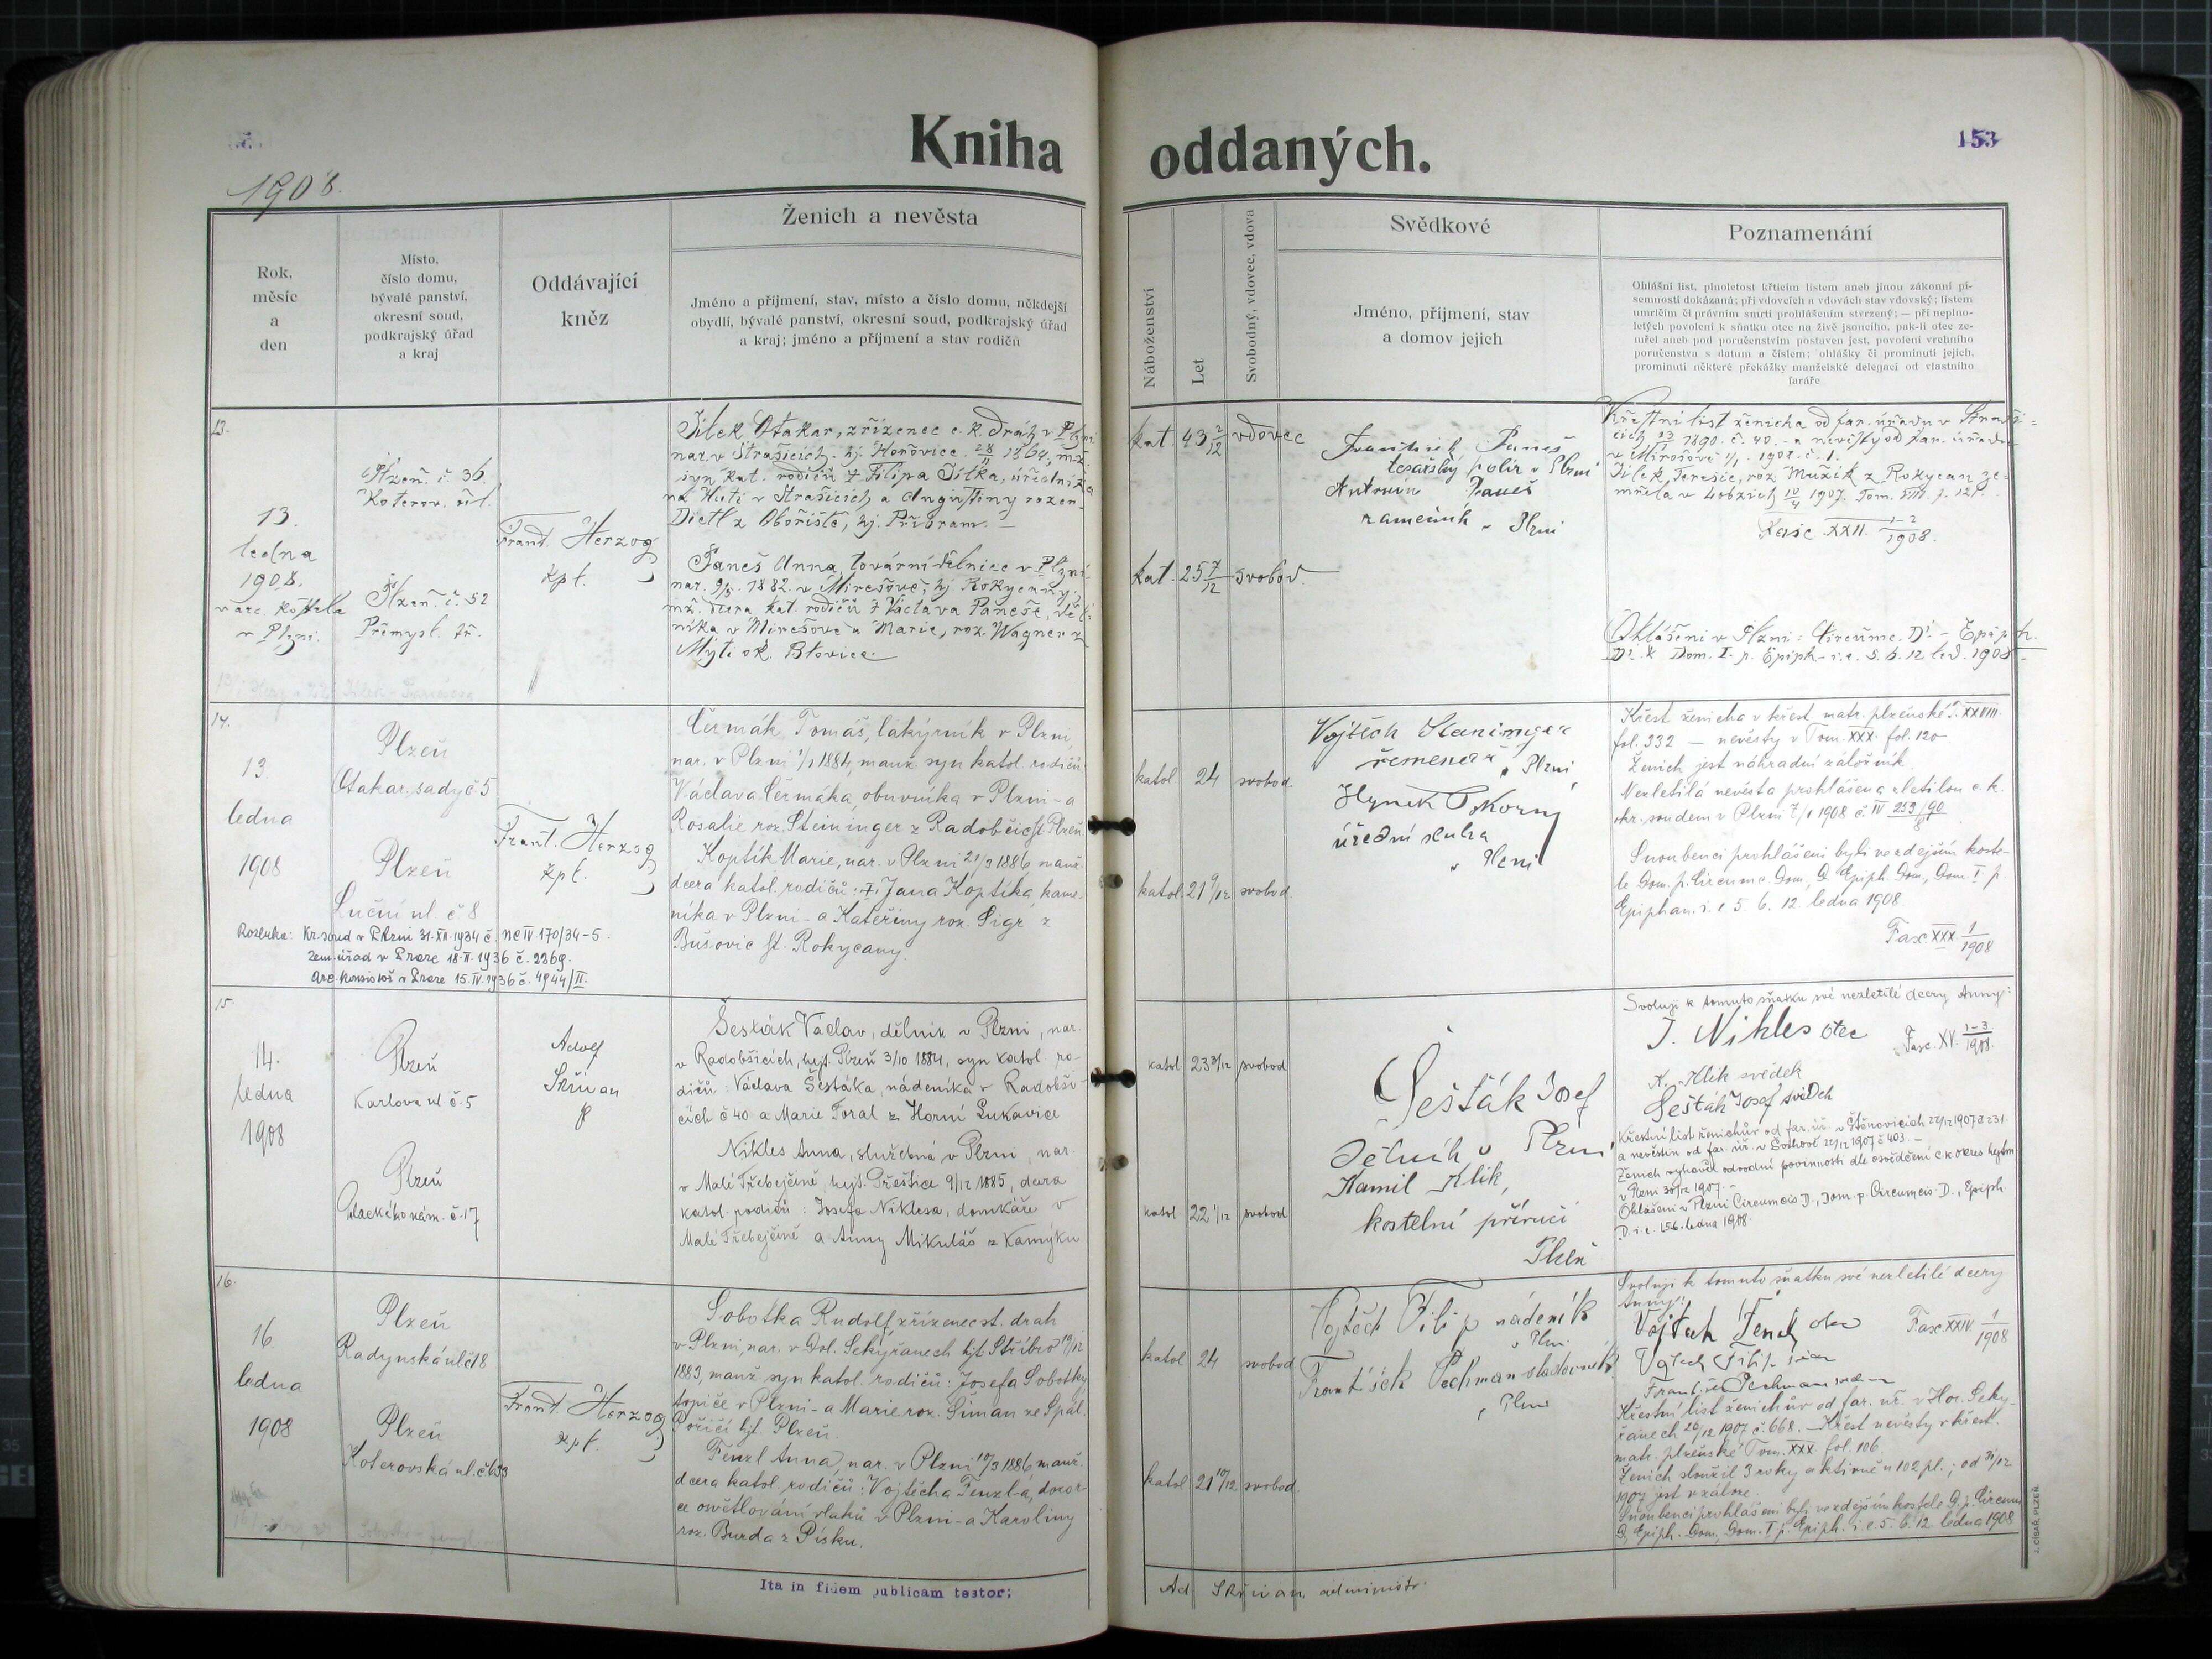 Kniha oddaných.
153
1908.
Ženich a nevěsta
Svědkové
Poznamenání
Rok,
měsíc
a
den
Místo,
číslo domu,
bývalé panství,
okresní soud,
podkrajský úřad
a kraj
Oddávající
kněz
Jméno a příjmení, stav, místo a číslo domu, někdejší
obydlí, bývalé panství, okresní soud, podkrajský úřad
a kraj; jméno a příjmení a stav rodičů
Náboženství
Let
Svobodný, vdovec, vdova
Jméno, příjmení, stav
a domov jejich
Ohlášní list, plnoletost křticím listem aneb jinou zákonní pí-
semností dokázaná; při vdovcích a vdovách stav vdovský; listem
umrlčím či právním smrti prohlášením stvrzený; — při neplno-
letých povolení k sňatku otce na živě jsoucího, pak-li otec ze-
mřel aneb pod poručenstvím postaven jest, povolení vrchního
poručenstva s datum a číslem; ohlášky či prominutí jejich,
prominutí některé překážky manželské delegací od vlastního
faráře
13.
13.
ledna
1908.
v arc. kostele
v Plzni.
Plzeň. č. 36.
Koterov. ul.
Plzeň. č. 52
Přemysl. tř.
Frant. Herzog
kpl.
Jílek Otakar, zřízenec c. k. drah v Plzni
nar. v Strašicích. hj. Hořovice. 28/11 1864, mž.
syn kat. rodičů † Filipa Jílka, úředníka
na Huti v Strašicích a Augustiny rozen.
Dietl z Obořiště, hj. Příbram. —
Paneš Anna, tovární dělnice v Plzni
nar. 9/5. 1882. v Mirešově, hj Rokycany,
mž. dcera kat. rodičů † Václava Paneše, děl-
níka v Mirešově a Marie, roz. Wagner z
Mýti ok. Blovice.
kat. 43 2/12 vdovec
kat. 25 7/12 svobod.
František Paneš
tesařský polír v Plzni
Antonín Paneš
kameník v Plzni
Křestní list ženicha od far. úřadu v Straši-
cích 23/11 1890. č. 40. - a nevěsty od far. úřadu
v Mirošově 1/1. 1908. č. 1.
Jílek Terezie, roz. Mužík z Rokycan ze-
mřela v Lobzích 10/4 1907. Tom. VIII. p. 121.
Fasc. XXII. 1-2/1908.
Ohlášeni v Plzni: Circumc. D. - Epiph.
D. & Dom. I. p. Epiph. - i. e. 5. 6. 12 led. 1908
14.
13.
ledna
1908
Plzeň
Otakar. sady č 5
Plzeň
Luční ul. č 8
Frant. Herzog
kpl.
Rozluka: Kr. soud v Plzni 31. XII. 1934 č. Nc IV 170/34-5.
Zem. úřad v Praze 18. II. 1936 č. 2369.
Arc. konsistoř v Praze 15. IV. 1936 č. 4944/II.
Čermák Tomáš, lakýrník v Plzni,
nar. v Plzni 1/1 1884, manž. syn katol. rodičů:
Václava Čermáka, obuvníka v Plzni - a
Rosalie roz. Steininger z Radobčic hjt. Plzeň
Koptík Marie, nar. v Plzni 21/3 1886, manž.
dcera katol. rodičů: † Jana Koptíka, kame-
níka v Plzni - a Kateřiny roz. Sigr z
Bušovic hjt. Rokycany.
katol 24 svobod.
katol. 21 9/12 svobod
Vojtěch Staninger
řemenář v Plzni
Hynek Pokorný
úřední sluha
v Plzni
Křest ženicha v křest. matr. plzeňské T. XXVIII.
fol. 332 — nevěsty v Tom. XXX. fol. 120
Ženich jest náhradní záložník.
Nezletilá nevěsta prohlášena zletilou c. k.
okr. soudem v Plzni 7/1 1908 č. IV 253/90
Snoubenci prohlášeni byli ve zdejším koste-
le Dom. p. Circumc. Dom., D. Epiph. Dom., Dom. I. p.
Epiphan. i. e 5. 6. 12 ledna 1908.
Fasc. XXX 1/1908
15.
14.
ledna
1908
Plzeň
Karlova ul. č. 5
Plzeň
Palackého nám. č. 17
Adolf
Skřivan
Šesták Václav, dělník v Plzni, nar.
v Radobšicích, hejt. Plzeň 3/10 1884, syn katol. ro-
dičů: Václava Šestáka, nádeníka v Radobši-
cích č 40 a Marie Toral z Horní Lukavice
Nikles Anna, služebná v Plzni, nar.
v Malé Třebejčině, hejt. Přeštice 9/12 1885, dcera
katol. rodičů: Josefa Niklesa, domkáře v
Malé Třebejčině a Anny Mikuláš z Kamýku
katol 23 3/12 svobod
katol 22 1/12 svobod
Šesták Josef
dělník v Plzni
Kamil Klik,
kostelní příručí
Plzeň
Svoluji k tomuto sňatku své nezletilé dcery Anny:
J. Nikles otec
Fasc. XV. 1-3/1908.
K. Klik svědek
Šesták Josef svědek
Křestní list ženichův od far. úř. v Štěnovicích 22/12 1907 č 231.
a nevěstin od far. úř. v Soběkurech 22/12 1907 č 403 —
Ženich vyhověl odvodní povinnosti dle osvědčení c k okres hejtm
v Plzni 30/12 1907. —
Ohlášeni v Plzni Circumcis D., Dom. p. Circumcis. D., Epiph.
D. i. e. 1. 5. 6. ledna 1908.
16.
16
ledna
1908
Plzeň
Radynská ul č 18
Plzeň
Koterovská ul. č 133
Frant. Herzog
kpl.
Sobotka Rudolf, zřízenec st. drah
v Plzni, nar. v Dol. Sekyřanech hjt. Stříbro 19/12
1883, manž. syn katol. rodičů: Josefa Sobotky,
topiče v Plzni - a Marie roz. Šiman ze Spál.
Poříčí hjt. Plzeň.
Fenzl Anna, nar. v Plzni 10/3 1886, manž.
dcera katol. rodičů: Vojtěcha Fenzla, dozor-
ce osvětlování vlaků v Plzni - a Karoliny
roz. Burda z Písku.
katol 24 svobod
katol 21 10/12 svobod.
Vojtěch Filip nádeník
v Plzni
František Pechman
v Plzni
Svoluji k tomuto sňatku své nezletilé dcery
Anny:
Vojtěch Fenzl otec
Fasc. XXIV. 1/1908
Vojtěch Filip
František Pechman
Křestní list ženichův od far. úř. v Hor. Seky-
řanech 26/12 1907 č. 668. — Křest nevěsty v křest.
matr. plzeňské Tom. XXX. fol. 106.
Ženich sloužil 3 roky aktivně u 102 pl.; od 31/12
1907 jest v záloze.
Snoubenci prohlášeni byli ve zdejším kostele D. p. Circum
D., Epiph. Dom., Dom. I p. Epiph. i. e. 5. 6. 12. ledna 1908
Ita in fidem publicam testor:
Ad. Skřivan, administr.
J. CÍSAŘ, PLZEŇ.